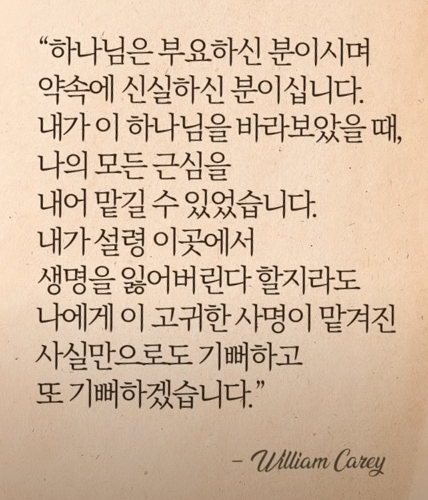 “하나님은 부요하신 분이시며
약속에 신실하신 분이십니다.
내가 이 하나님을 바라보았을 때,
나의 모든 근심을
내어 맡길 수 있었습니다.
내가 설령 이곳에서
생명을 잃어버린다 할지라도
나에게 이 고귀한 사명이 맡겨진
사실만으로도 기뻐하고
또 기뻐하겠습니다.”
– William Carey